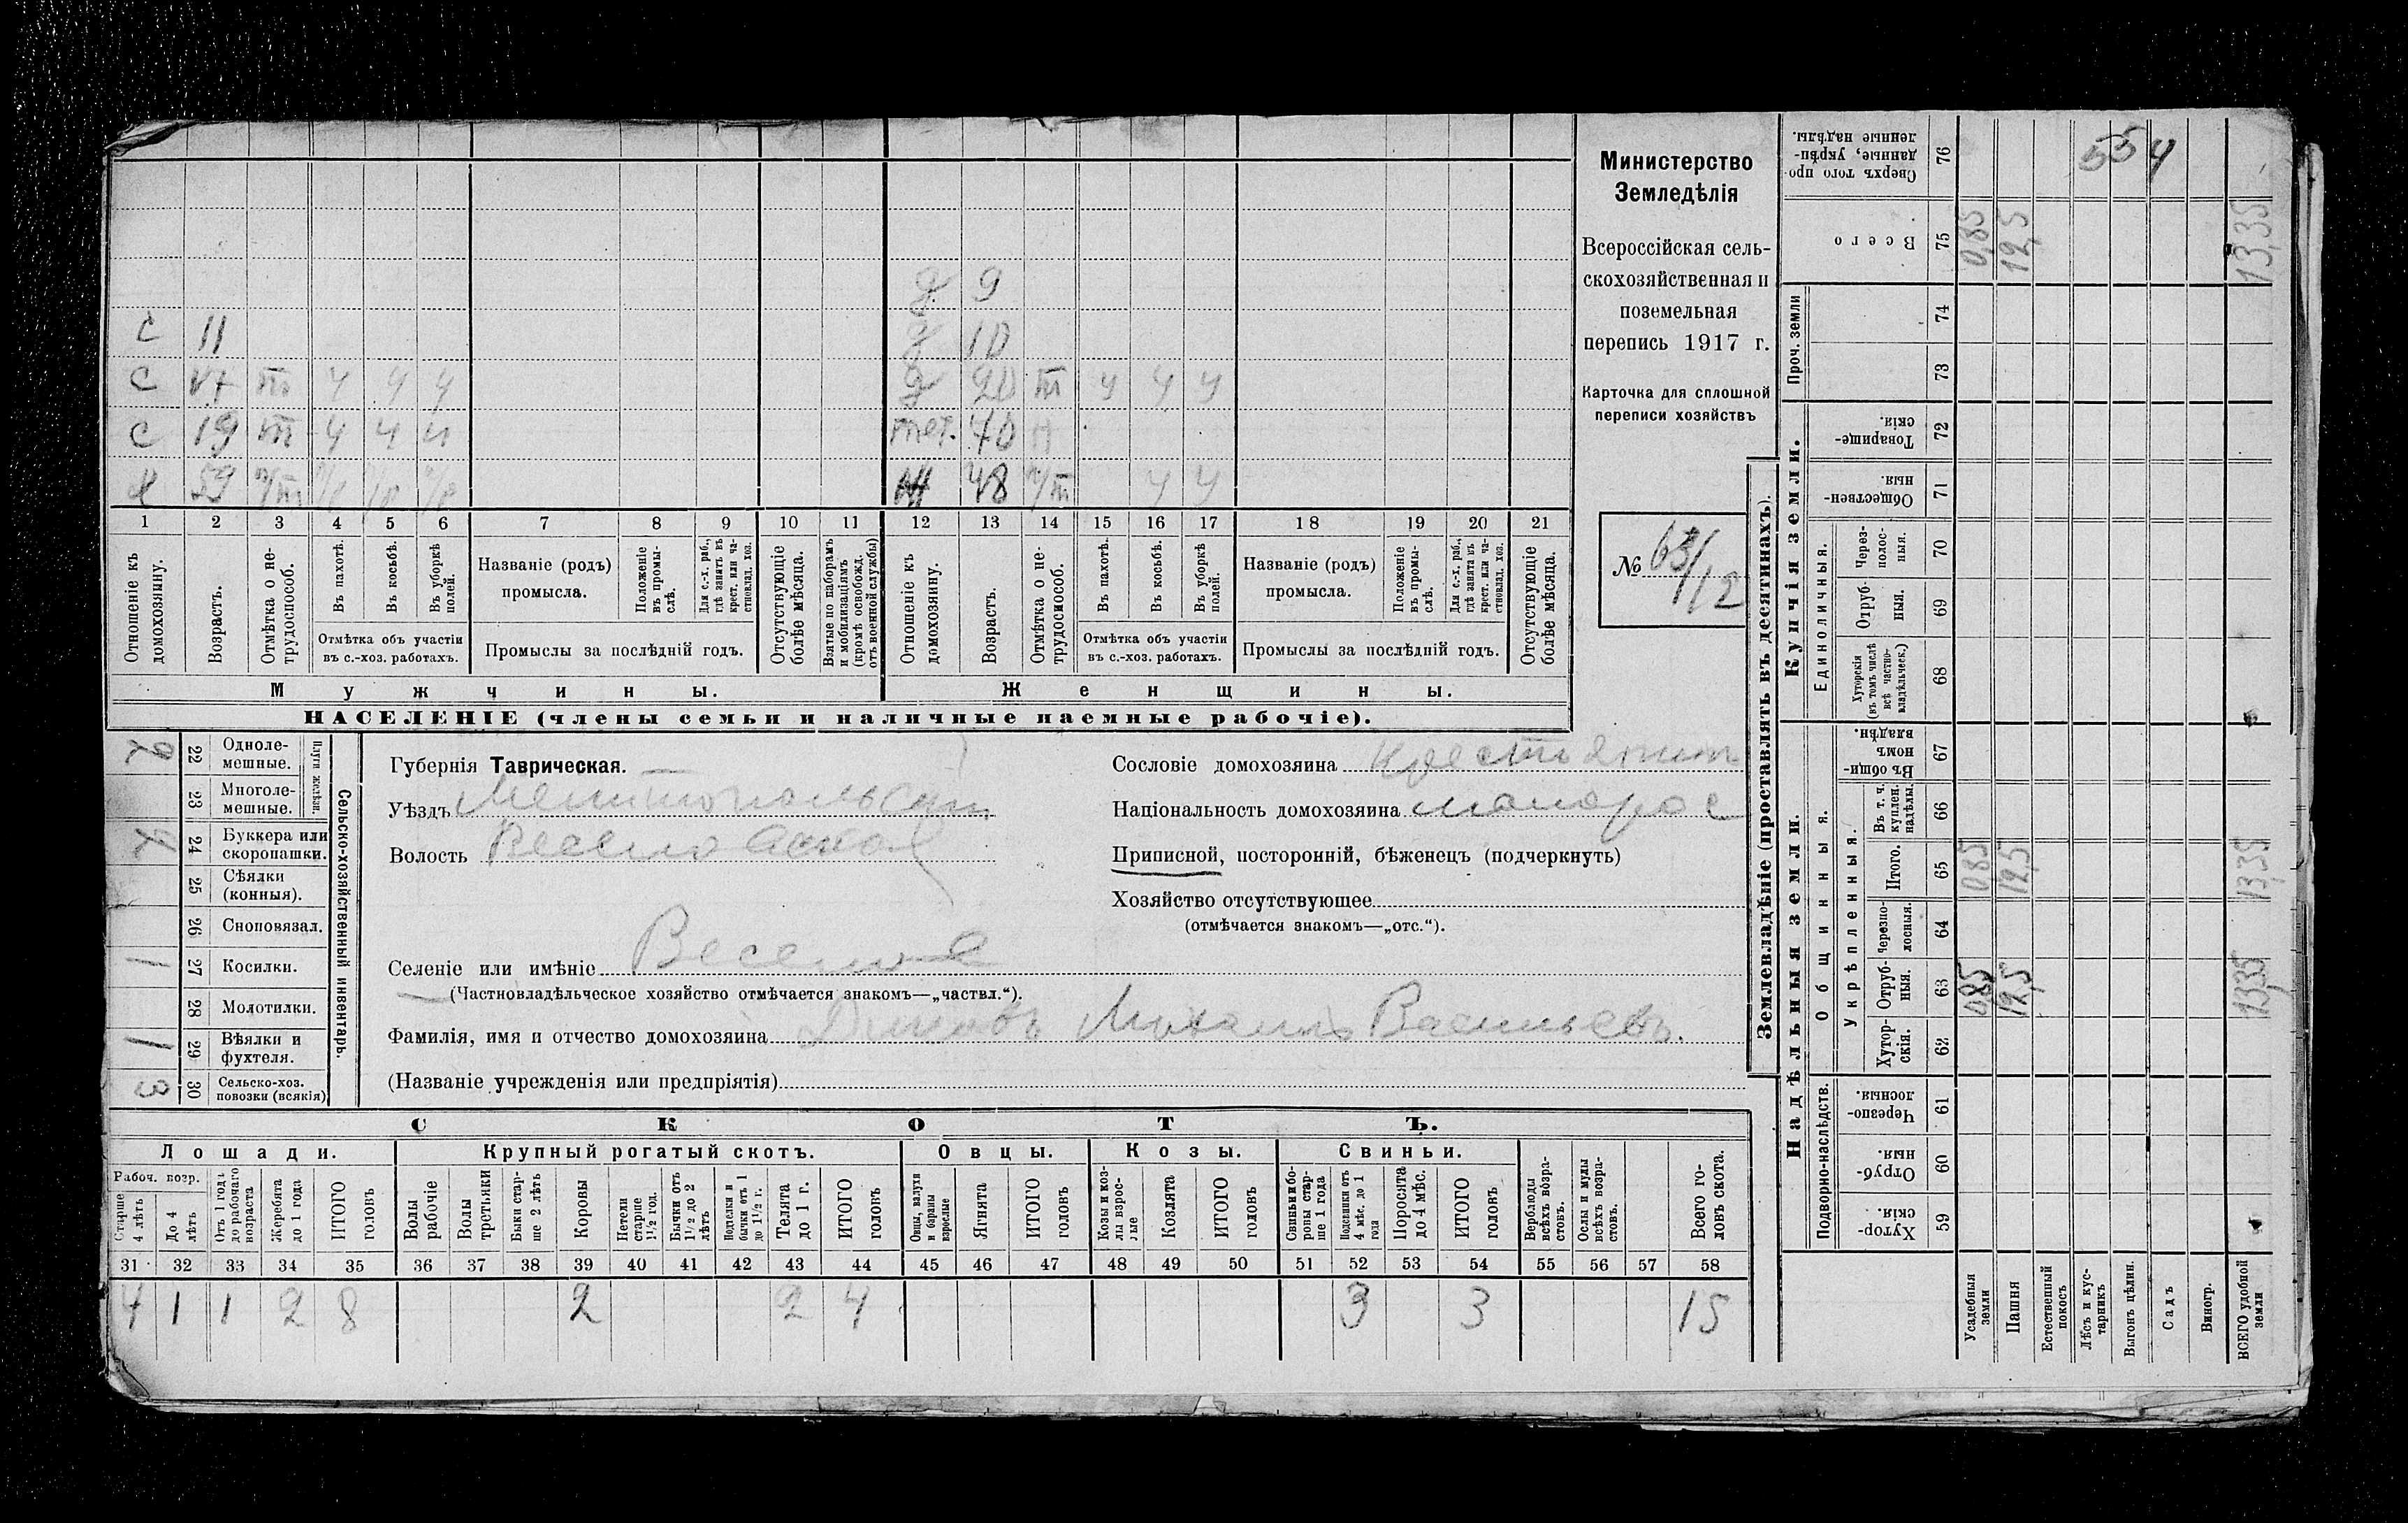 554
Министерство
Земледѣлія
Всероссійская сель-
скохозяйственная и
поземельная
перепись 1917 г.
Карточка для сплошной
переписи хозяйствъ
№ 63/12
д 9
С 11 д 10
С 17 т ч ч ч д 20 т ч ч ч
С 19 т ч ч ч тет. 70 н
Х 59 ж 48 ч ч
1 2 3 4 5 6 7 8 9 10 11 12 13 14 15 16 17 18 19 20 21
Отношеніе къ домохозяину.
Возрастъ.
Отмѣтка о не-трудоспособ.
Въ пахотѣ.
Въ косьбѣ.
Въ уборкѣ полей.
Отмѣтка объ участіи въ с.-хоз. работахъ.
Названіе (родъ) промысла.
Положеніе въ промы-слѣ.
Для с.-х. раб., гдѣ занятъ въ крест. или ча-стновлад. хоз.
Промыслы за послѣдній годъ.
Отсутствующіе болѣе мѣсяца.
Взятые по наборамъ и мобилизаціямъ (кромѣ освобожд. отъ военной службы)
Отношеніе къ домохозяину.
Возрастъ.
Отмѣтка о не-трудоспособ.
Въ пахотѣ.
Въ косьбѣ.
Въ уборкѣ полей.
Отмѣтка объ участіи въ с.-хоз. работахъ.
Названіе (родъ) промысла.
Положеніе въ промы-слѣ.
Для с.-х. раб., гдѣ занята въ крест. или ча-стновлад. хоз.
Промыслы за послѣдній годъ.
Отсутствующіе болѣе мѣсяца.
Мужчины. Женщины.
НАСЕЛЕНІЕ (члены семьи и наличные наемные рабочіе).
Сельско-хозяйственный инвентарь.
Плуги желѣзн.
2 22 Одноле-мешные.
23 Многоле-мешные.
24 Буккера или скоропашки.
25 Сѣялки (конныя).
26 Сноповязал.
1 27 Косилки.
28 Молотилки.
1 29 Вѣялки и фухтеля.
3 30 Сельско-хоз. повозки (всякія)
Губернія Таврическая.
Уѣздъ Мелитопольскій
Волость Веселовская
Селеніе или имѣніе Веселое
(Частновладѣльческое хозяйство отмѣчается знакомъ—„частвл.“).
Фамилія, имя и отчество домохозяина Михаилъ Васильевъ.
(Названіе учрежденія или предпріятія)
Сословіе домохозяина крестьянинъ
Національность домохозяина малорос
Приписной, посторонній, бѣженецъ (подчеркнуть)
Хозяйство отсутствующее
(отмѣчается знакомъ—„отс.“).
СКОТЪ.
Лошади. Крупный рогатый скотъ. Овцы. Козы. Свиньи.
Рабоч. возр.
Старше 4 лѣтъ
До 4 лѣтъ
Отъ 1 года до рабочаго возраста
Жеребята до 1 года
ИТОГО головъ
Волы рабочіе
Волы третьяки
Быки стар-ше 2 лѣтъ
Коровы
Нетели старше 1½ год.
Бычки отъ 1½ до 2 лѣтъ
Подтелки и бычки отъ 1 до 1½ г.
Телята до 1 г.
ИТОГО головъ
Овцы, валухи и бараны взрослые
Ягнята
ИТОГО головъ
Козы и коз-лы взрос-лые
Козлята
ИТОГО головъ
Свиньи и бо-ровы стар-ше 1 года
Подсвинки отъ 4 мѣс. до 1 года
Поросята до 4 мѣс.
ИТОГО головъ
Верблюды всѣхъ возра-стовъ.
Ослы и мулы всѣхъ возра-стовъ.
Всего го-ловъ скота.
31 32 33 34 35 36 37 38 39 40 41 42 43 44 45 46 47 48 49 50 51 52 53 54 55 56 57 58
4 1 1 2 8 2 2 4 3 3 15
Землевладѣніе (проставлять въ десятинахъ).
Надѣльныя земли. Купчія земли. Проч. земли
Подворно-наслѣдств. Общинныя. Единоличныя.
Укрѣпленныя.
Хутор-скія. 59
Отруб-ныя. 60
Черезпо-лосныя. 61
Хутор-скія. 62
Отруб-ныя. 63 0,85 12,5 13,35
Черезпо-лосныя. 64
Итого. 65 0,85 12,5 13,35
Въ т. ч. куплен. надѣлы. 66
Въ общи-номъ владѣн. 67
Хуторскія (въ томъ числѣ всѣ частно-владѣльческ.) 68
Отруб-ныя. 69
Через-полос-ныя. 70
Обществен-ныя. 71
Товарище-скія. 72
73
74
Всего 75 0,85 12,5 13,35
Сверхъ того про-данные, укрѣп-ленные надѣлы. 76
Усадебныя земли
Пашня
Естественный покосъ
Лѣсъ и кус-тарникъ
Выгонъ цѣлин.
Садъ
Виногр.
ВСЕГО удобной земли